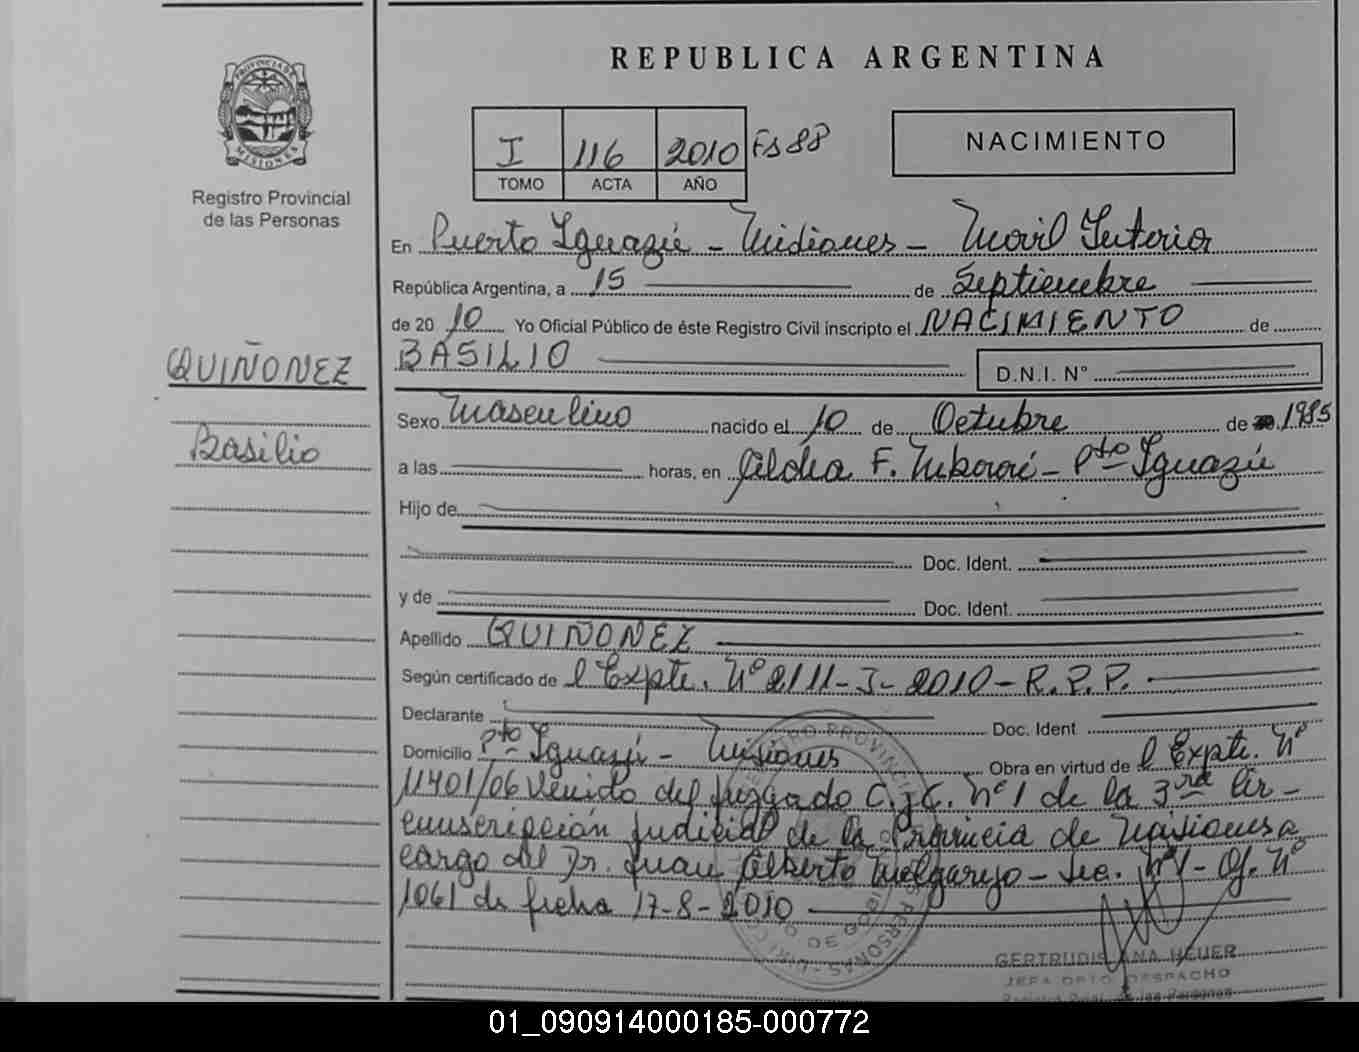 REPUBLICA ARGENTINA
PROVINCIA DE
MISIONES
Registro Provincial
de las Personas
I 116 2010 Fs 88
TOMO ACTA AÑO
NACIMIENTO
En Puerto Iguazú - Misiones - Movil Interior
República Argentina, a 15 de Septiembre
de 20 10 Yo Oficial Público de éste Registro Civil inscripto el NACIMIENTO de
BASILIO D.N.I. N°
QUIÑONEZ
Basilio
Sexo Masculino nacido el 10 de Octubre de 1985
a las horas, en Aldea F. Mborore - Pto Iguazú
Hijo de
Doc. Ident.
y de Doc. Ident.
Apellido QUIÑONEZ
Según certificado de l Expte. Nº 2111-I-2010-R.P.P.
Declarante Doc. Ident
Domicilio Pto Iguazú - Misiones Obra en virtud de l Expte. Nº
11401/06 Venido del Juzgado C. y C. nº 1 de la 3ra Cir-
cunscripción Judicial de la Provincia de Misiones a
cargo del Dr. Juan Alberto Melgarejo - Sec. Nº 1 - Of. Nº
1061 de fecha 17-8-2010
GERTRUDIS ANA HEUER
JEFA DPTO DESPACHO
01_090914000185-000772